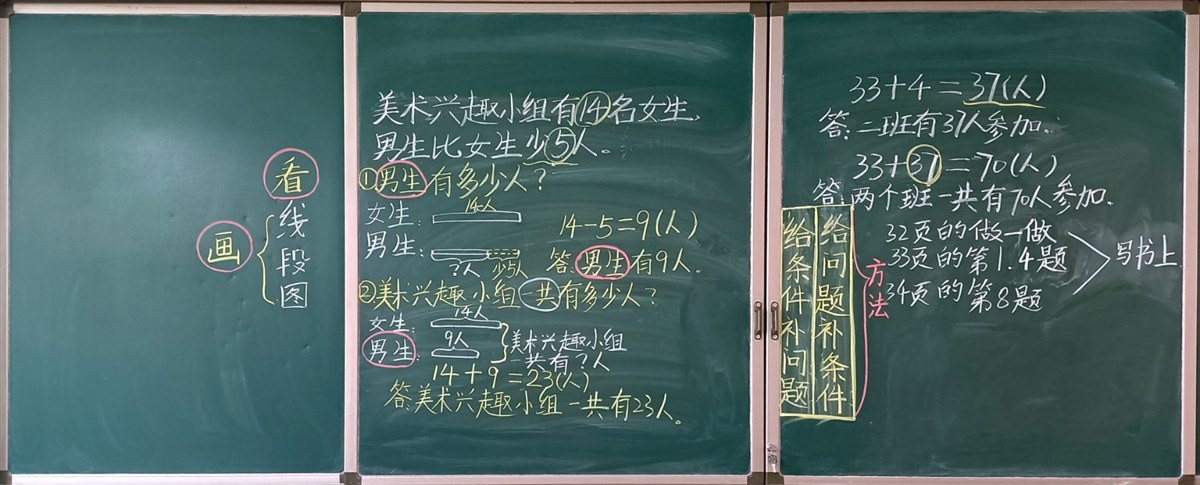 看
画
线段图
美术兴趣小组有14名女生,
男生比女生少5人。
①男生有多少人?
女生:
14人
男生:
?人 少5人
14-5=9(人)
答:男生有9人.
②美术兴趣小组一共有多少人?
女生:
14人
男生:
9人
美术兴趣小组
一共有?人
14+9=23(人)
答:美术兴趣小组一共有23人。
33+4=37(人)
答:二班有37人参加.
33+37=70(人)
答:两个班一共有70人参加.
给条件补问题
给问题补条件
方法
32页的做一做
33页的第1.4题
34页的第8题
写书上